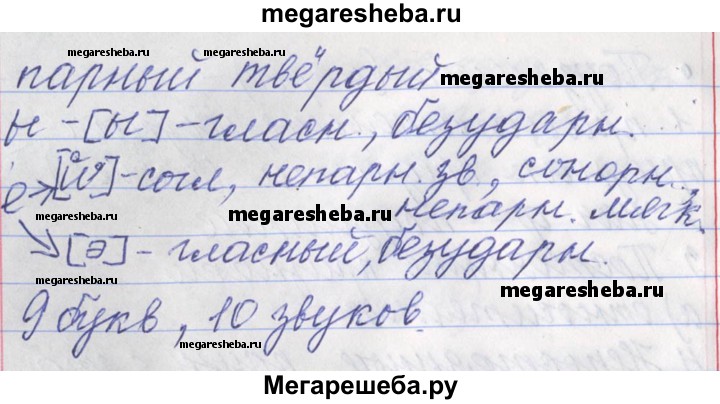 megaresheba.ru
megaresheba.ru
megaresheba.ru
megaresheba.ru
парный твёрдый
megaresheba.ru
ы - [ы] - гласн., безударн.
е [й'] - согл, непарн. зв., сонорн.,
megaresheba.ru
непарн. мягк.
megaresheba.ru
[э] - гласный, безударн.
megaresheba.ru
9 букв, 10 звуков
megaresheba.ru
Мегарешеба.ру